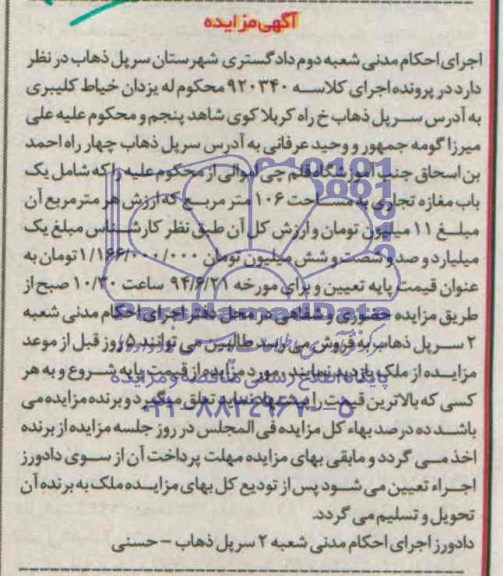 آگهی مزایده
اجرای احکام مدنی شعبه دوم دادگستری شهرستان سرپل ذهاب در نظر
دارد در پرونده اجرای کلاسه ۹۲۰۳۴۰ محکوم له یزدان خیاط کلیبری
به آدرس سرپل ذهاب خ راه کربلا کوی شاهد پنجم و محکوم علیه علی
میرزا گومه جمهور و وحید عرفانی به آدرس سرپل ذهاب چهار راه احمد
بن اسحاق جنب آموزشگاه قلم چی اموالی از محکوم علیه را که شامل یک
باب مغازه تجاری به مساحت ۱۰۶ متر مربع که ارزش هر متر مربع آن
مبلغ ۱۱ میلیون تومان و ارزش کل آن طبق نظر کارشناس مبلغ یک
میلیارد و صد و شصت و شش میلیون تومان ۱/۱۶۶/۰۰۰/۰۰۰ تومان به
عنوان قیمت پایه تعیین و برای مورخه ۹۴/۶/۲۱ ساعت ۱۰/۳۰ صبح از
طریق مزایده حضوری و شفاهی در محل دفتر اجرای احکام مدنی شعبه
۲ سرپل ذهاب به فروش می رسد طالبین می توانند ۵ روز قبل از موعد
مزایده از ملک بازدید نمایند و مورد مزایده از قیمت پایه شروع و به هر
کسی که بالاترین قیمت را پیشنهاد نماید تعلق میگیرد و برنده مزایده می
باشد ده درصد بهاء کل مزایده فی المجلس در روز جلسه مزایده از برنده
اخذ می گردد و مابقی بهای مزایده مهلت پرداخت آن از سوی دادورز
اجراء تعیین می شود پس از تودیع کل بهای مزایده ملک به برنده آن
تحویل و تسلیم می گردد.
دادورز اجرای احکام مدنی شعبه ۲ سرپل ذهاب – حسنی
ParsNamadData
پایگاه اطلاع رسانی مناقصه و مزایده
۰۲۱-۸۸۳۴۹۶۷۰-۵